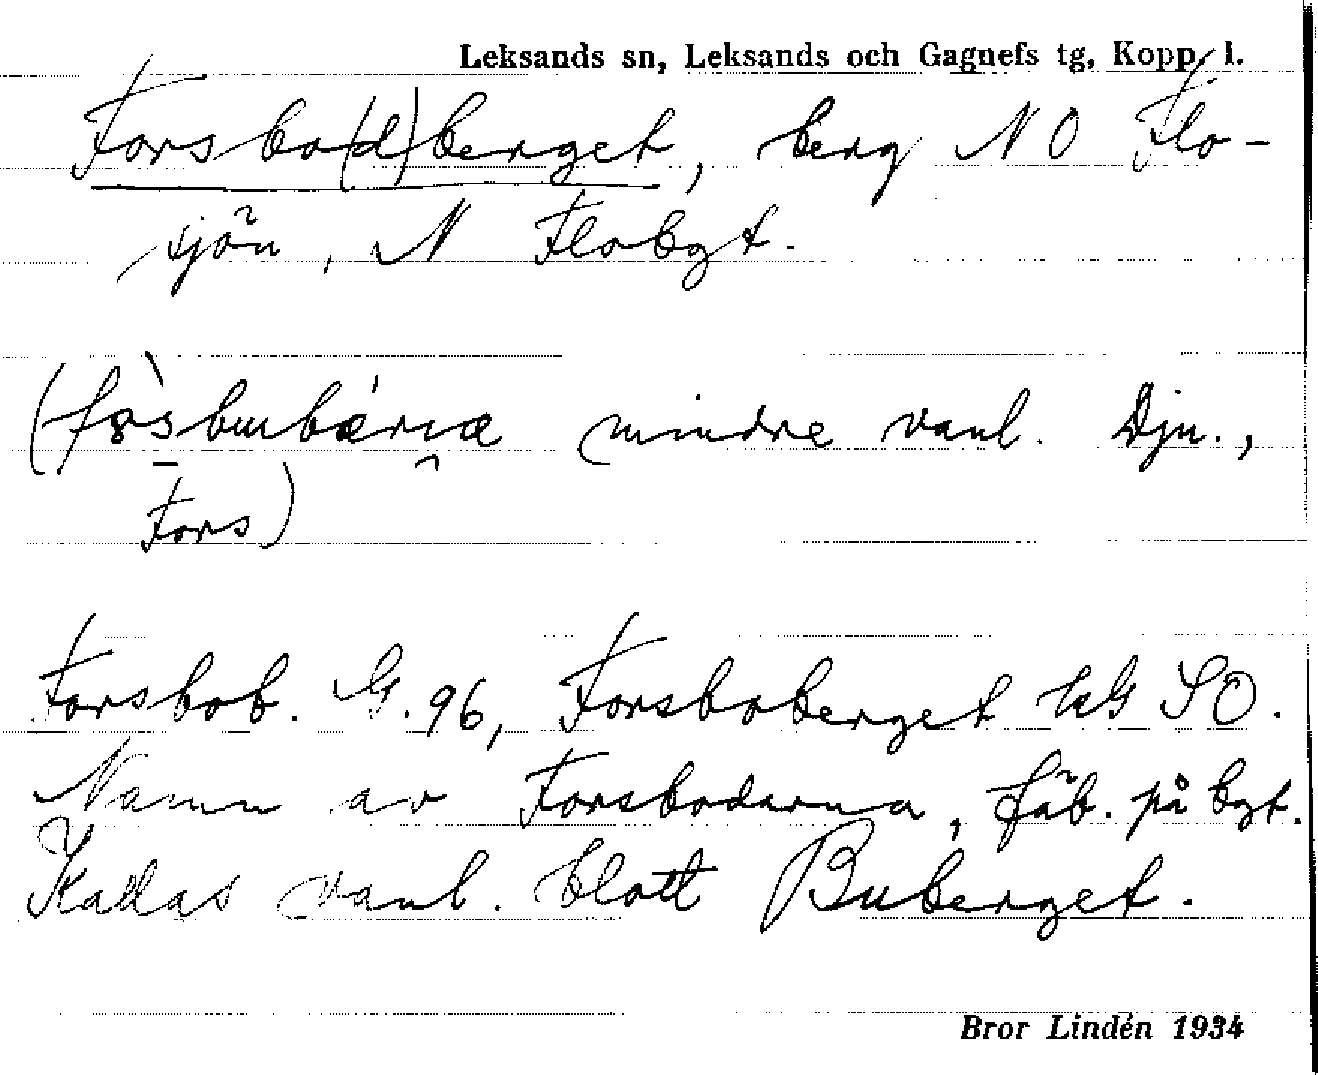 Leksands sn, Leksands och Gagnefs tg, Kopp. l.
Forsbo(d)berget, berg NO Flo-
sjön, N Flobgt.
mindre vanl. Dju.,
Fors)
Forsbob. G. 96, Forsboberget SO.
Namn av Forsbodarna, fäb. på bgt.
Kallas vanl. blott Buberget.
Bror Lindén 1934